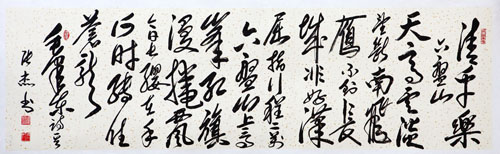 清平樂
六盤山
天高雲淡
望断南飛
雁不到長
城非好漢
屈指行程二萬
六盤山上高
峯紅旗
漫捲西風
今日長纓在手
何時縛住
蒼龍
毛澤東
張杰書